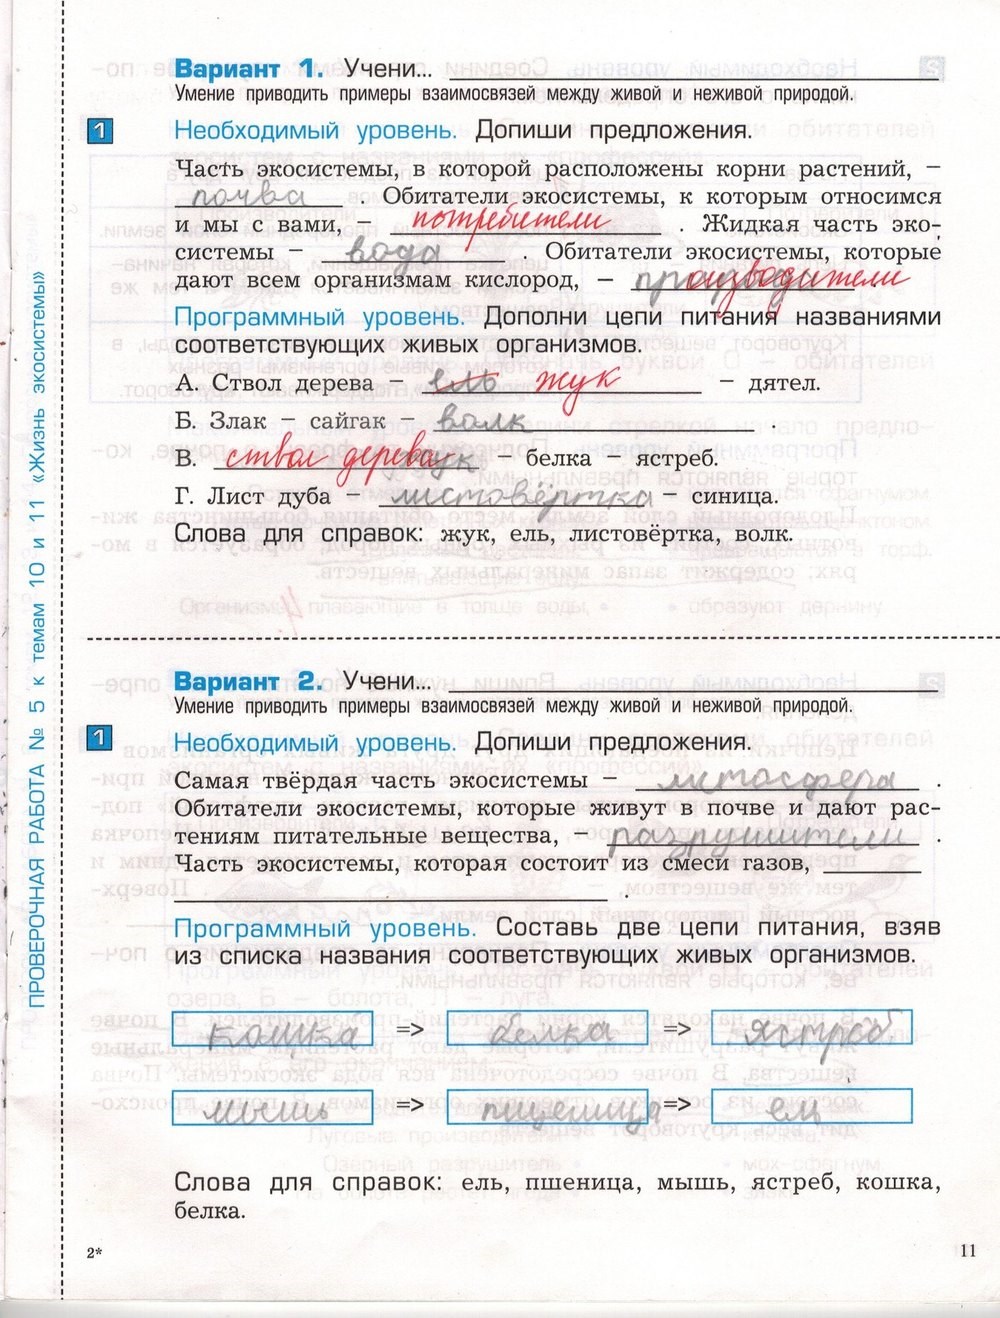 Вариант 1. Учени...
Умение приводить примеры взаимосвязей между живой и неживой природой.
1 Необходимый уровень. Допиши предложения.
Часть экосистемы, в которой расположены корни растений, –
почва . Обитатели экосистемы, к которым относимся
и мы с вами, – потребители . Жидкая часть эко-
системы – вода . Обитатели экосистемы, которые
дают всем организмам кислород, – производители
Программный уровень. Дополни цепи питания названиями
соответствующих живых организмов.
А. Ствол дерева – ель жук – дятел.
Б. Злак – сайгак – волк .
В. ствол дерева жук – белка – ястреб.
Г. Лист дуба – листовёртка – синица.
Слова для справок: жук, ель, листовёртка, волк.
ПРОВЕРОЧНАЯ РАБОТА № 5 к темам 10 и 11 «Жизнь экосистемы»
Вариант 2. Учени...
Умение приводить примеры взаимосвязей между живой и неживой природой.
1 Необходимый уровень. Допиши предложения.
Самая твёрдая часть экосистемы – литосфера .
Обитатели экосистемы, которые живут в почве и дают рас-
тениям питательные вещества, – разрушители .
Часть экосистемы, которая состоит из смеси газов,
.
Программный уровень. Составь две цепи питания, взяв
из списка названия соответствующих живых организмов.
кошка => белка => ястреб
мышь => пшеница => ел
Слова для справок: ель, пшеница, мышь, ястреб, кошка,
белка.
2* 11